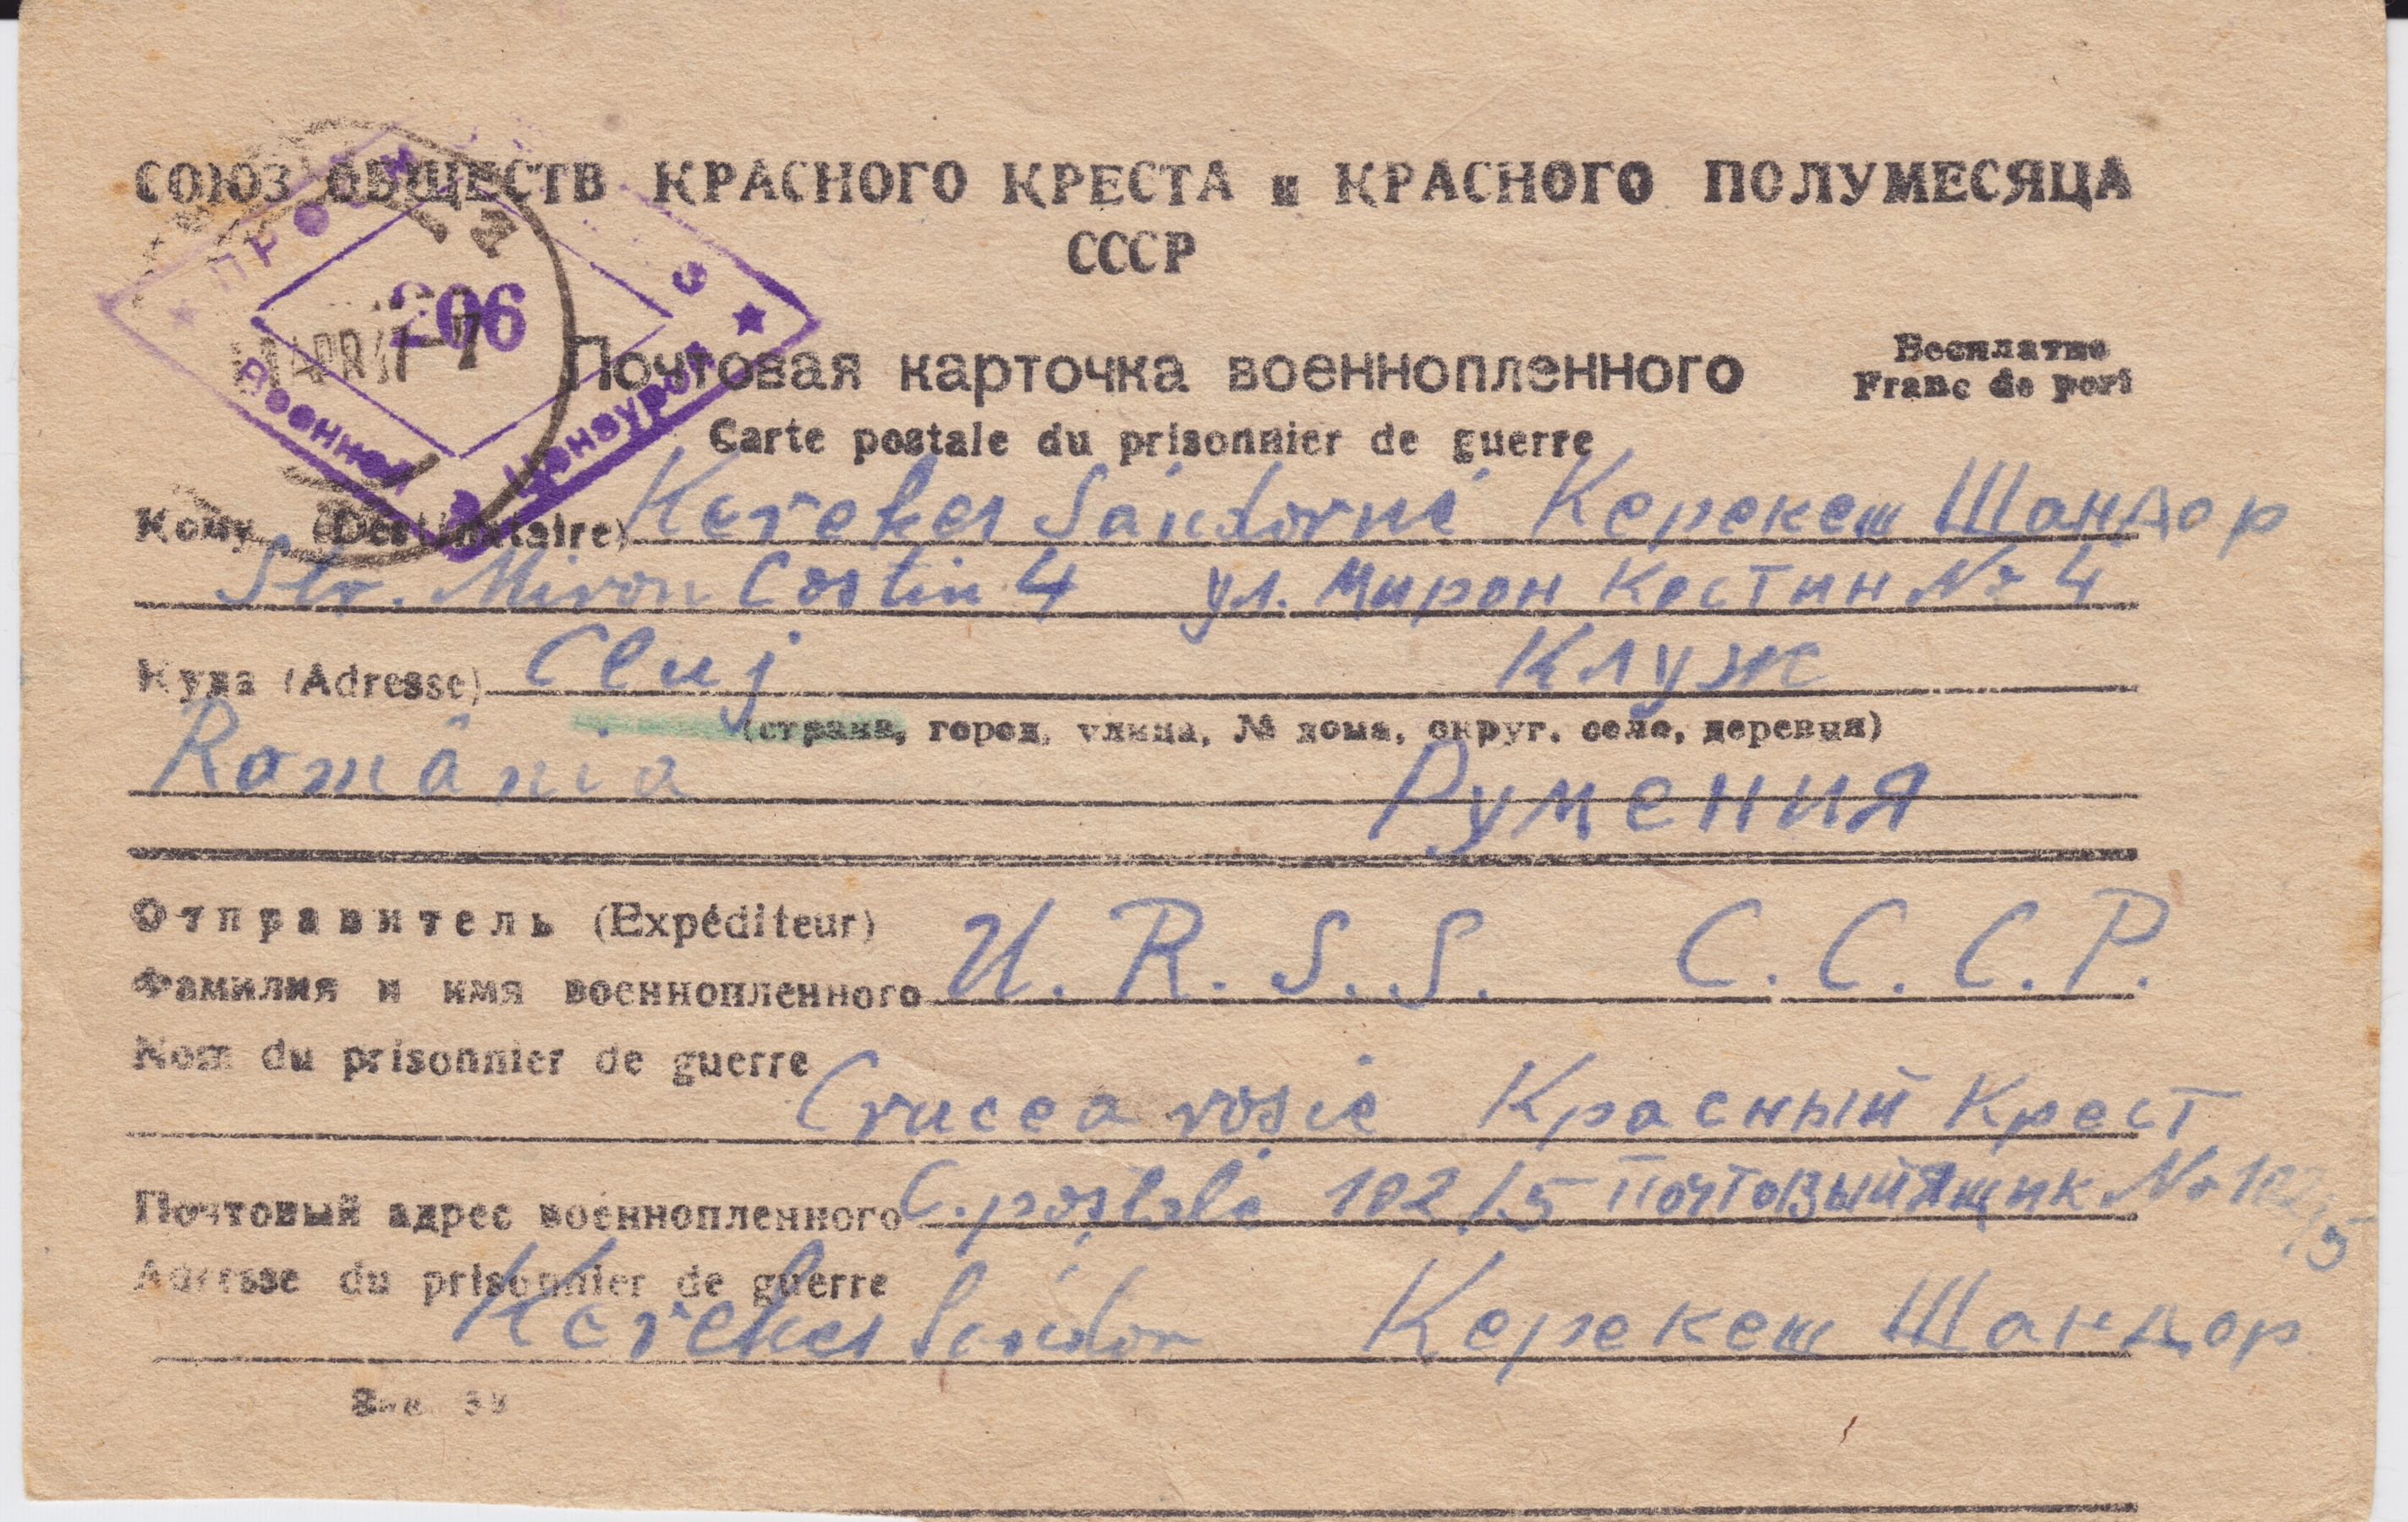 СОЮЗ ОБЩЕСТВ КРАСНОГО КРЕСТА и КРАСНОГО ПОЛУМЕСЯЦА
СССР
206
Военной Цензурой
Почтовая карточка военнопленного
Бесплатно
Franc de port
Carte postale du prisonnier de guerre
Кому (Destinataire) Kerekes Sándorné Керекеш Шандор
Str. Miron Costin 4 ул. Мирон Костин № 4
Куда (Adresse) Cluj Клуж
(страна, город, улица, № дома, округ, село, деревня)
România Румения
Отправитель (Expéditeur)
Фамилия и имя военнопленного U. R. S. S. С. С. С. Р.
Nom du prisonnier de guerre
Crucea rosie Красный Крест
Почтовый адрес военнопленного C. postale 102/5 Почтовый Ящик № 102/5
Adresse du prisonnier de guerre
Kerekes Sándor Керекеш Шандор